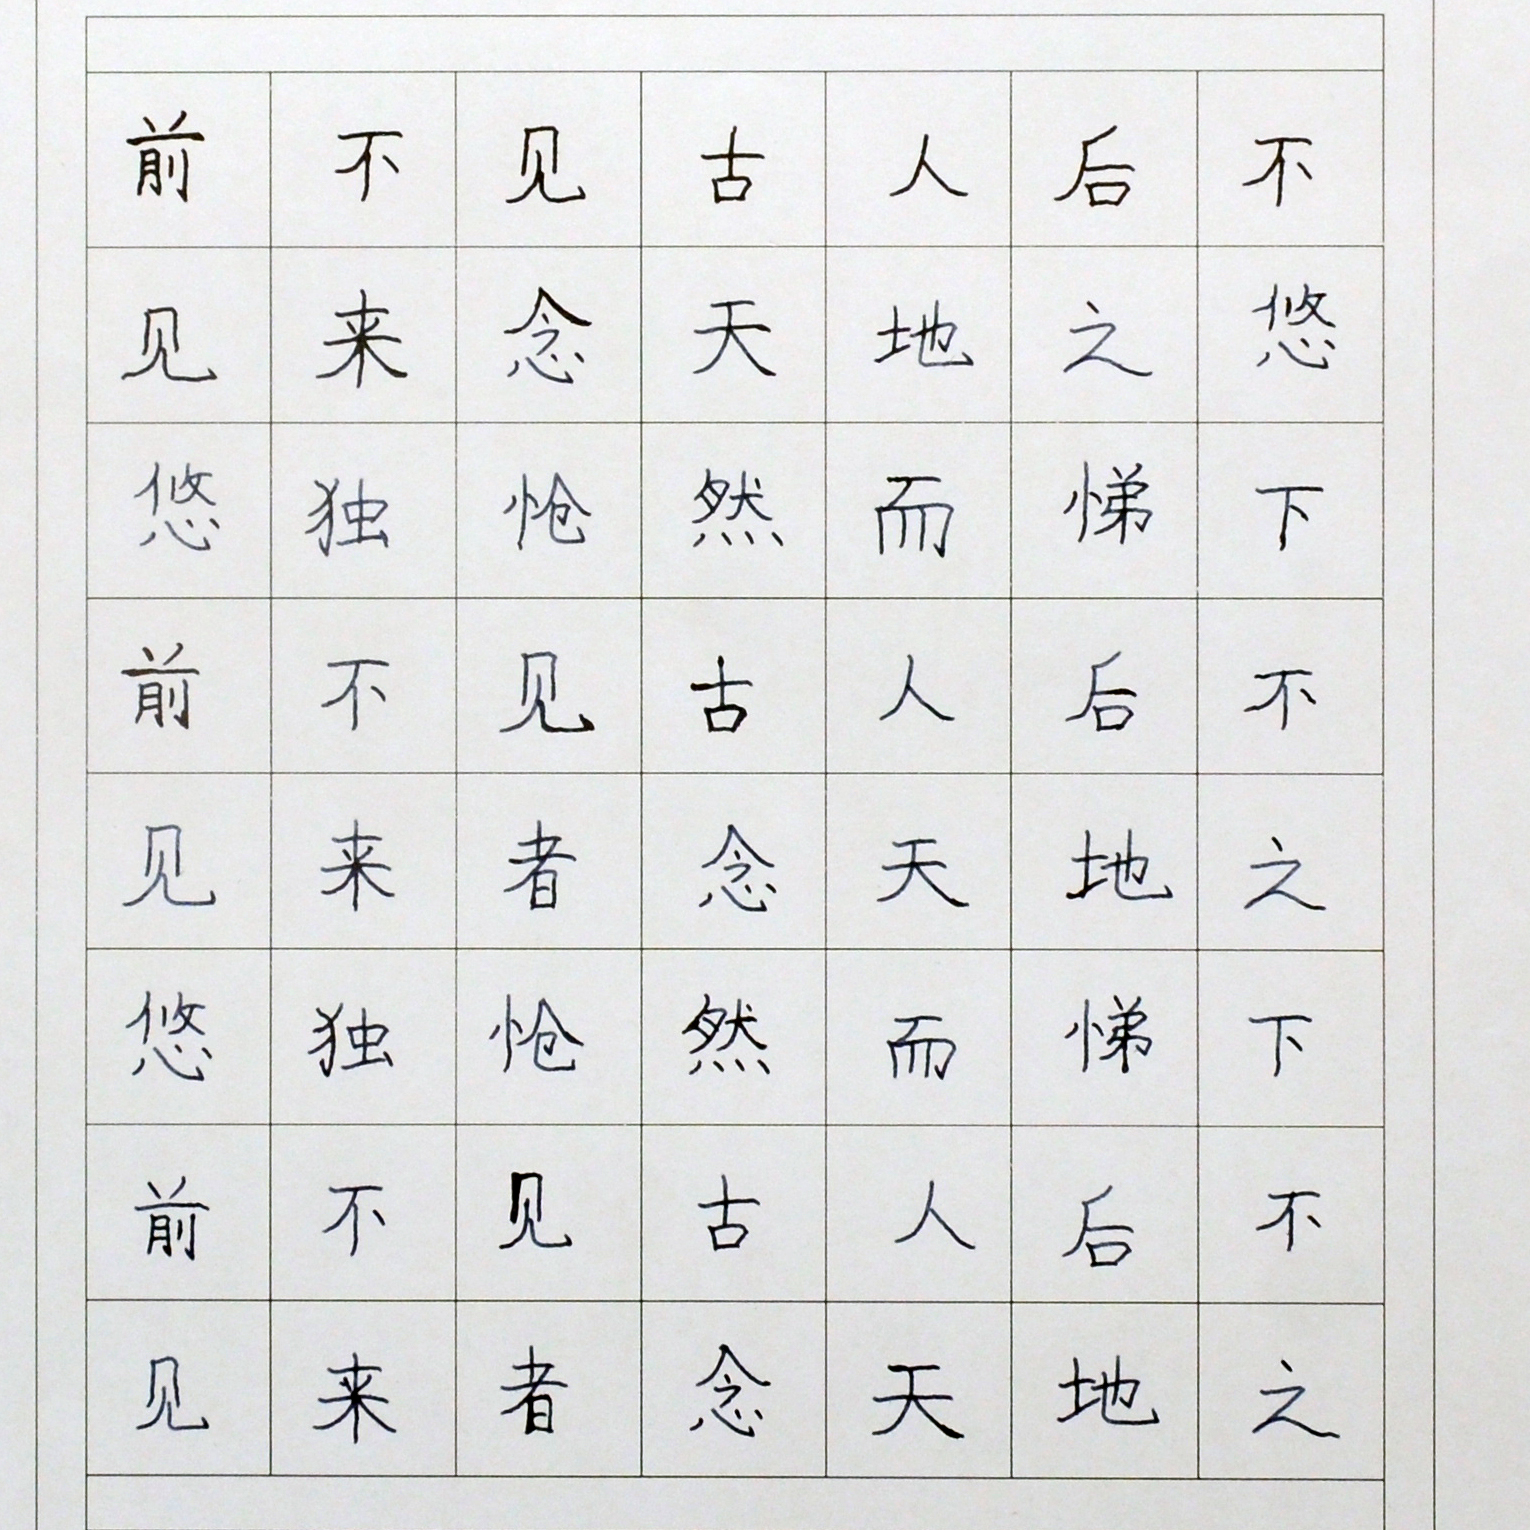 前不见古人后不
见来念天地之悠
悠独怆然而悌下
前不见古人后不
见来者念天地之
悠独怆然而悌下
前不见古人后不
见来者念天地之